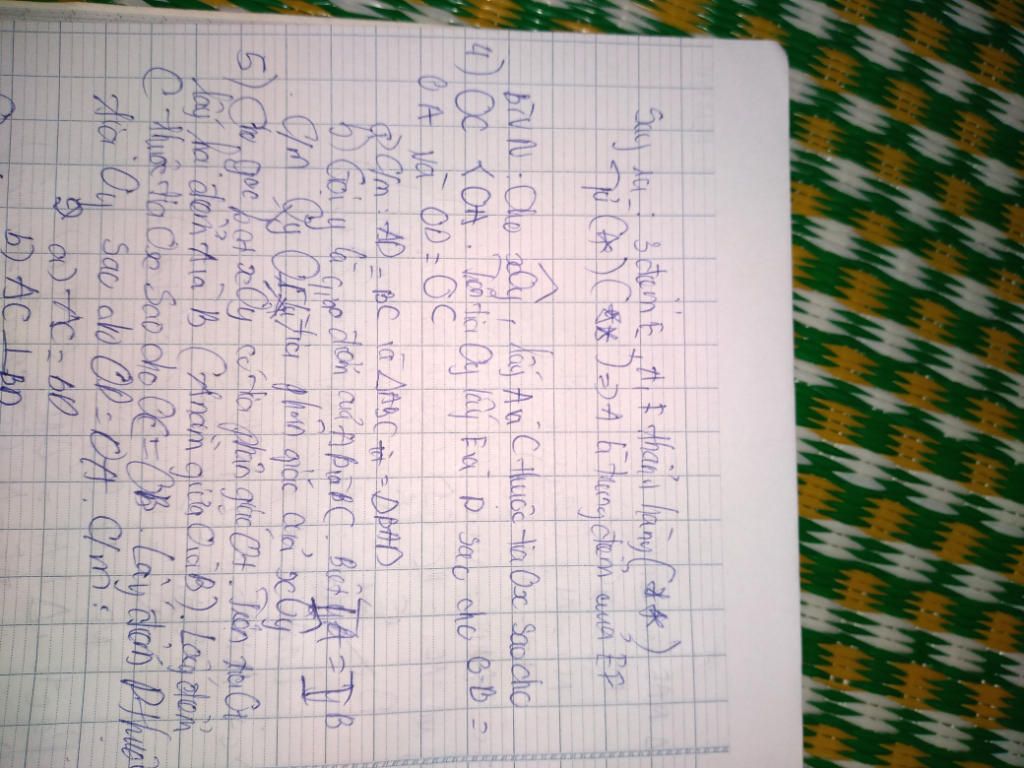 Suy ra: 3 điểm E, A, F thẳng hàng (**)
Từ (*) (**) => A là trung điểm của EF
BTVN: Cho xOy, lấy A và C thuộc tia Ox sao cho
4) OC < OA. Trên tia Oy lấy B và D sao cho OB =
OA và OD = OC
a) C/m: AD = BC và ΔABC = ΔBAD
b) Gọi I là giao điểm của AD và BC. Biết IA = IB
C/m Oy là tia phân giác của xOy
5) Cho góc xOy có tia phân giác Ot. Trên tia Ot
lấy hai điểm A và B (A nằm giữa O và B). Lấy điểm
C thuộc tia Ox sao cho OC = OB. Lấy điểm D thuộc
tia Oy sao cho OD = OA. C/m:
a) AC = BD
b) AC ⊥ BD